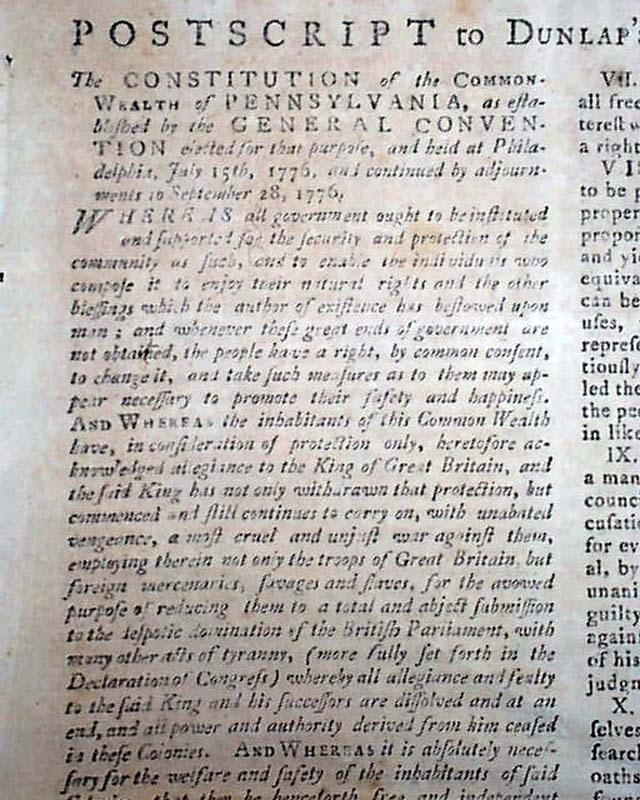 POSTSCRIPT to DUNLAP's
The CONSTITUTION of the COMMON-
WEALTH of PENNSYLVANIA, as esta-
blished by the GENERAL CONVEN-
TION elected for that purpose, and held at Phila-
delphia, July 15th, 1776, and continued by adjourn-
ments to September 28, 1776.
WHEREAS all government ought to be instituted
and supported for the security and protection of the
community as such, and to enable the individuals who
compose it to enjoy their natural rights and the other
blessings which the author of existence has bestowed upon
man; and whenever these great ends of government are
not obtained, the people have a right, by common consent,
to change it, and take such measures as to them may ap-
pear necessary to promote their safety and happiness.
AND WHEREAS the inhabitants of this Common Wealth
have, in consideration of protection only, heretofore ac-
knowledged allegiance to the King of Great Britain, and
the said King has not only withdrawn that protection, but
commenced and still continues to carry on, with unabated
vengeance, a most cruel and unjust war against them,
employing therein not only the troops of Great Britain, but
foreign mercenaries, savages and slaves, for the avowed
purpose of reducing them to a total and abject submission
to the despotic domination of the British Parliament, with
many other acts of tyranny, (more fully set forth in the
Declaration of Congress) whereby all allegiance and fealty
to the said King and his successors are dissolved and at an
end, and all power and authority derived from him ceased
in these Colonies. AND WHEREAS it is absolutely neces-
sary for the welfare and safety of the inhabitants of said
Colonies, that they be henceforth free and independent
VII.
all free
terest
a right
VI
to be p
proper
propor
and yie
equiva
can be
uses,
represe
tiously
led the
the peo
in like
IX.
a man
counc
cusatio
for ev
al, by
unani
guilty
again
of his
judgm
X.
selves
search
oaths